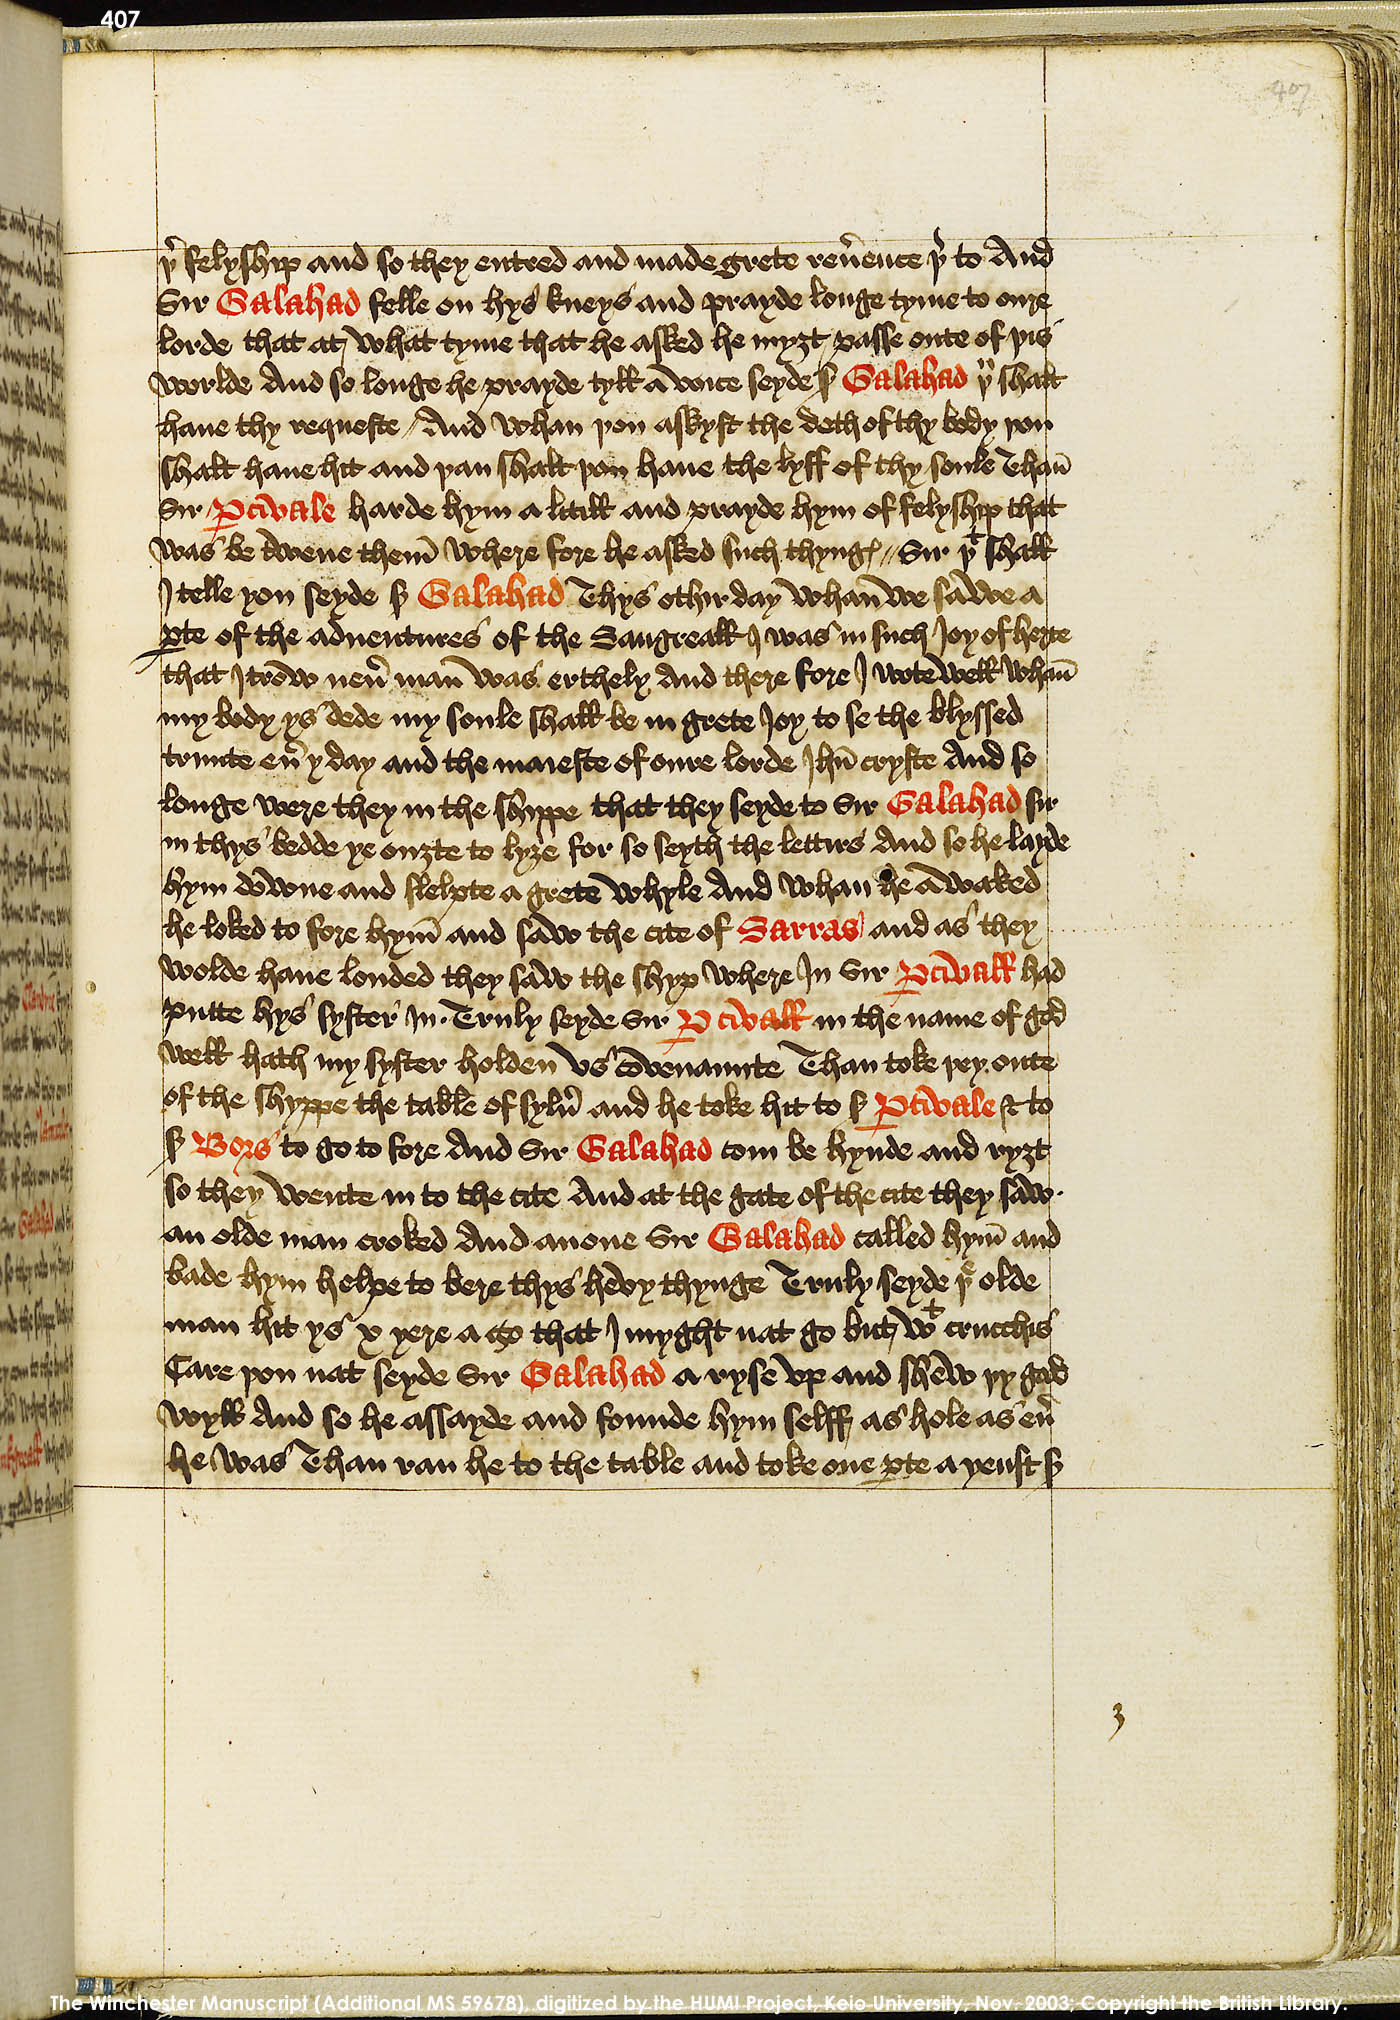 407
407
þr felyship and so they entred and made grete reuence þr to And
Sir Galahad felle on hys kneys and prayde longe tyme to oure
lorde that at what tyme that he asked he myȝt passe oute of þis
worlde And so longe he prayde tyll a voice seyde sr Galahad þu shalt
haue thy requeste / And whan þou askyst the deth of thy body þou
shalt haue hit and þan shalt þou haue the lyff of thy soule Than
Sir Pcivale harde hym a litill and prayde hym of felyship that
was be twene them where fore he asked such thyng // Sir þt shall
I telle you seyde sr Galahad Thys othir day whan we sawe a
pte of the aduentures of the Sangreall I was in such Joy of herte
that I trow neu man was erthely And there fore I wote well whan
my body ys dede my soule shall be in grete Joy to se the blyssed
trinite eu y day and the maieste of oure lorde Jhu cryste And so
longe were they in the shippe that they seyde to Sir Galahad sir
in thys bedde ye ouȝte to lyȝe for so seyth the lettirs And so he layde
hym downe and slepte a grete whyle And whan he a waked
he loked to fore hym and saw the cite of Sarras and as they
wolde haue londed they saw the shyp where In Sir Pcivall had
putte hys syster In. Truly seyde Sir Pcivall in the name of god
well hath my syster holden us covenaunte Than toke þey oute
of the shyppe the table of sylu and he toke hit to sr Pcivale & to
sr Bors to go to fore And Sir Galahad com be hynde and ryȝt
so they wente in to the cite And at the gate of the cite they saw
an olde man croked And anone Sir Galahad called hym and
bade hym helpe to bere thys hevy thynge Truly seyde þe olde
man hit ys x yere a go that I myght nat go but wt crucchis
Care þou nat seyde Sir Galahad a ryse up and shew þy good
wyll And so he assayde and founde hym selff as hole as eu
he was Than ran he to the table and toke one pte a yenst sr
3
The Winchester Manuscript (Additional MS 59678), digitized by the HUMI Project, Keio University, Nov. 2003; Copyright the British Library.